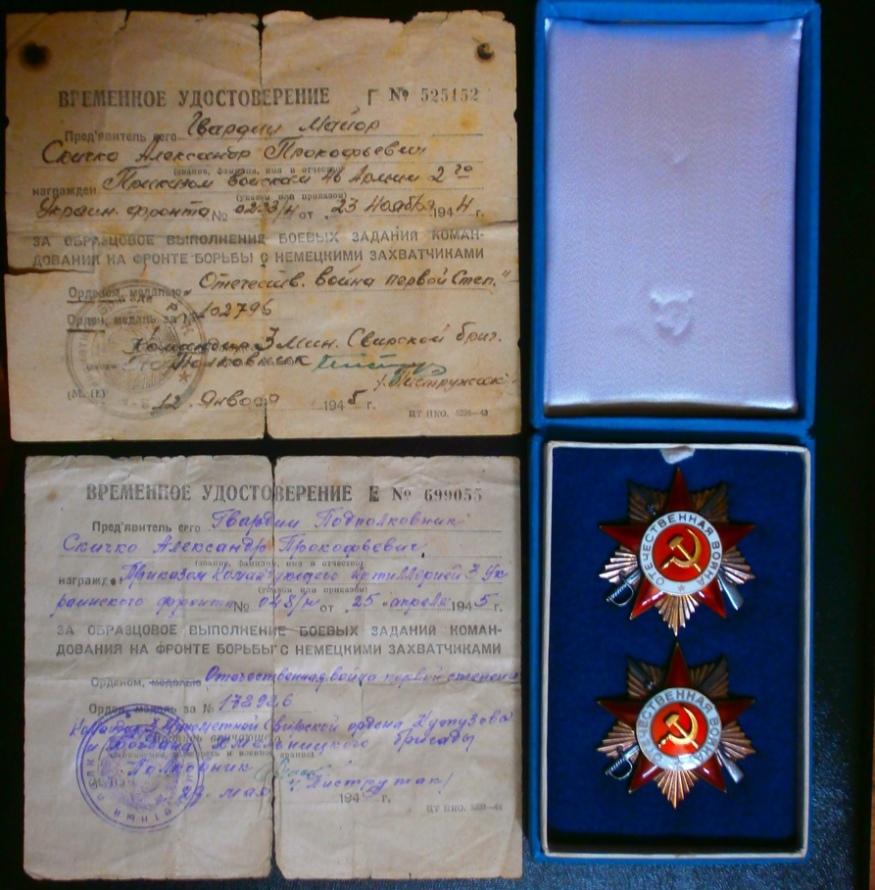 ВРЕМЕННОЕ УДОСТОВЕРЕНИЕ Г № 525152
Пред'явитель сего Гвардии Майор
Скичко Александр Прокофьевич
(звание, фамилия, имя и отчество)
награжден Приказом Войскам 46 Армии 2го
(указом или приказом)
Украин. фронта № 0233/н от „23 Ноября 1944 г.
ЗА ОБРАЗЦОВОЕ ВЫПОЛНЕНИЕ БОЕВЫХ ЗАДАНИЙ КОМАН-
ДОВАНИЯ НА ФРОНТЕ БОРЬБЫ С НЕМЕЦКИМИ ЗАХВАТЧИКАМИ
Орденом, медалью „Отечеств. война первой Степ."
Орден, медаль за № 102796
Командир 3 Мин. Свирской бриг.
Полковник
(М. П.) 12 Января 1945 г.
ЦТ НКО.
ВРЕМЕННОЕ УДОСТОВЕРЕНИЕ Е № 699055
Пред'явитель сего Гвардии Подполковник
Скичко Александр Прокофьевич
(звание, фамилия, имя и отчество)
награжден Приказом Командующего Артиллерией 3 Ук-
(указом или приказом)
раинского фронта № 048/н от „25 апреля 1945 г.
ЗА ОБРАЗЦОВОЕ ВЫПОЛНЕНИЕ БОЕВЫХ ЗАДАНИЙ КОМАН-
ДОВАНИЯ НА ФРОНТЕ БОРЬБЫ С НЕМЕЦКИМИ ЗАХВАТЧИКАМИ
Орденом, медалью Отечественная война первой степени
Орден, медаль за № 178926
Командир 3 Минометной Свирской ордена Кутузова
и Богдана Хмельницкого бригады
Полковник
29 мая 1945 г.
ЦТ НКО.
ОТЕЧЕСТВЕННАЯ ВОЙНА
ОТЕЧЕСТВЕННАЯ ВОЙНА